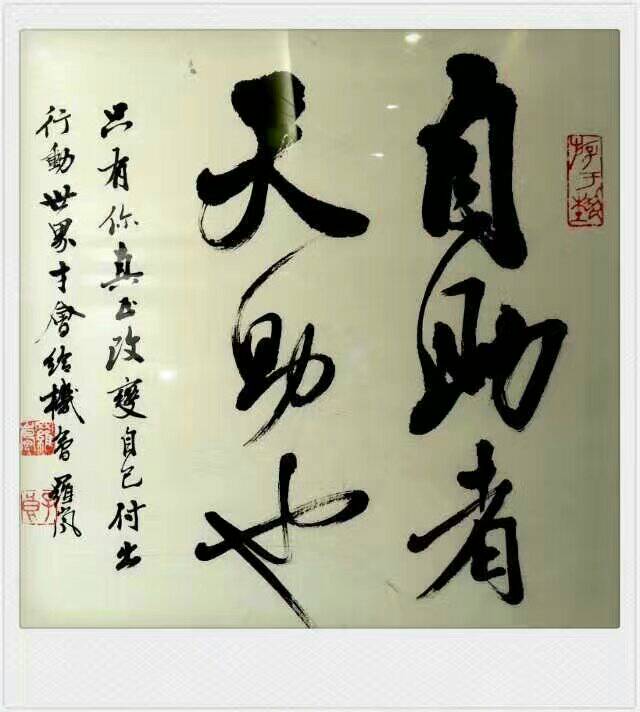 游于藝
自助者
天助也
只有你真正改變自己付出
行動世界才會給機會 羅